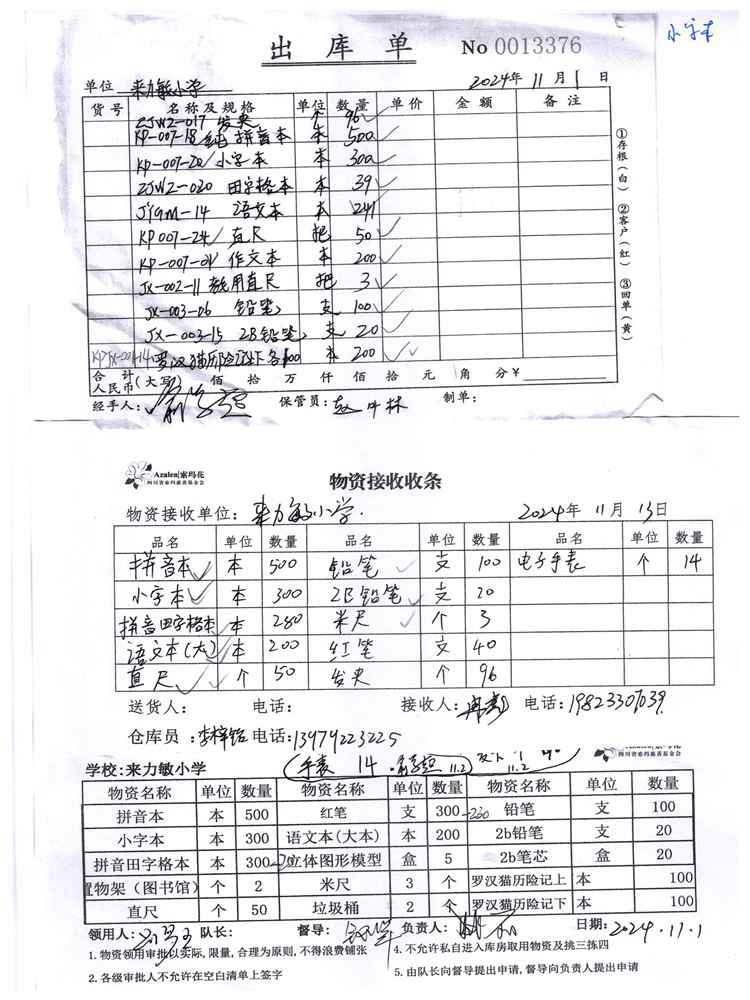 小字本
出库单 No 0013376
单位 来力敏小学 2024年11月1日
货号 名称及规格 单位 数量 单价 金额 备注
ZJWZ-017 发夹 个 96
KP-007-18 纯拼音本 本 500
KP-007-20/小字本 本 300
ZJWZ-020 田字格本 本 39
JYGM-14 语文本 本 241
KP007-24/直尺 把 50
KP-007-01/作文本 本 200
JX-002-11 教用直尺 把 3
JX-003-06 铅笔 支 100
JX-003-15 2B铅笔 支 20
罗汉猫历险记上下各100 本 200
合计人民币(大写) 佰 拾 万 仟 佰 拾 元 角 分 ¥
经手人: 保管员: 制单:
①存根(白) ②客户(红) ③回单(黄)
Azalea|索玛花
四川省索玛慈善基金会
物资接收收条
物资接收单位: 来力敏小学. 2024年11月13日
品名 单位 数量 品名 单位 数量 品名 单位 数量
拼音本 本 500 铅笔 支 100 电子手表 个 14
小字本 本 300 2B铅笔 支 20
拼音田字格本 本 280 米尺 个 3
语文本(大) 本 200 红笔 支 40
直尺 个 50 发夹 个 96
送货人: 电话: 接收人: 电话: 19823307039
仓库员: 电话: 13979223225
Azalea|索玛花
四川省索玛慈善基金会
学校: 来力敏小学 手表 14 11.2 11.2
物资名称 单位 数量 物资名称 单位 数量 物资名称 单位 数量
拼音本 本 500 红笔 支 300 -260 铅笔 支 100
小字本 本 300 语文本(大本) 本 200 2b铅笔 支 20
拼音田字格本 本 300 -20 立体图形模型 盒 5 2b笔芯 盒 20
置物架(图书馆) 个 2 米尺 3 个 罗汉猫历险记上 本 100
直尺 个 50 垃圾桶 2 个 罗汉猫历险记下 本 100
领用人: 队长: 督导: 负责人: 日期: 2024.11.1
1. 物资领用审批以实际, 限量, 合理为原则, 不得浪费铺张 4. 不允许私自进入库房取用物资及挑三拣四
2. 各级审批人不允许在空白清单上签字 5. 由队长向督导提出申请, 督导向负责人提出申请